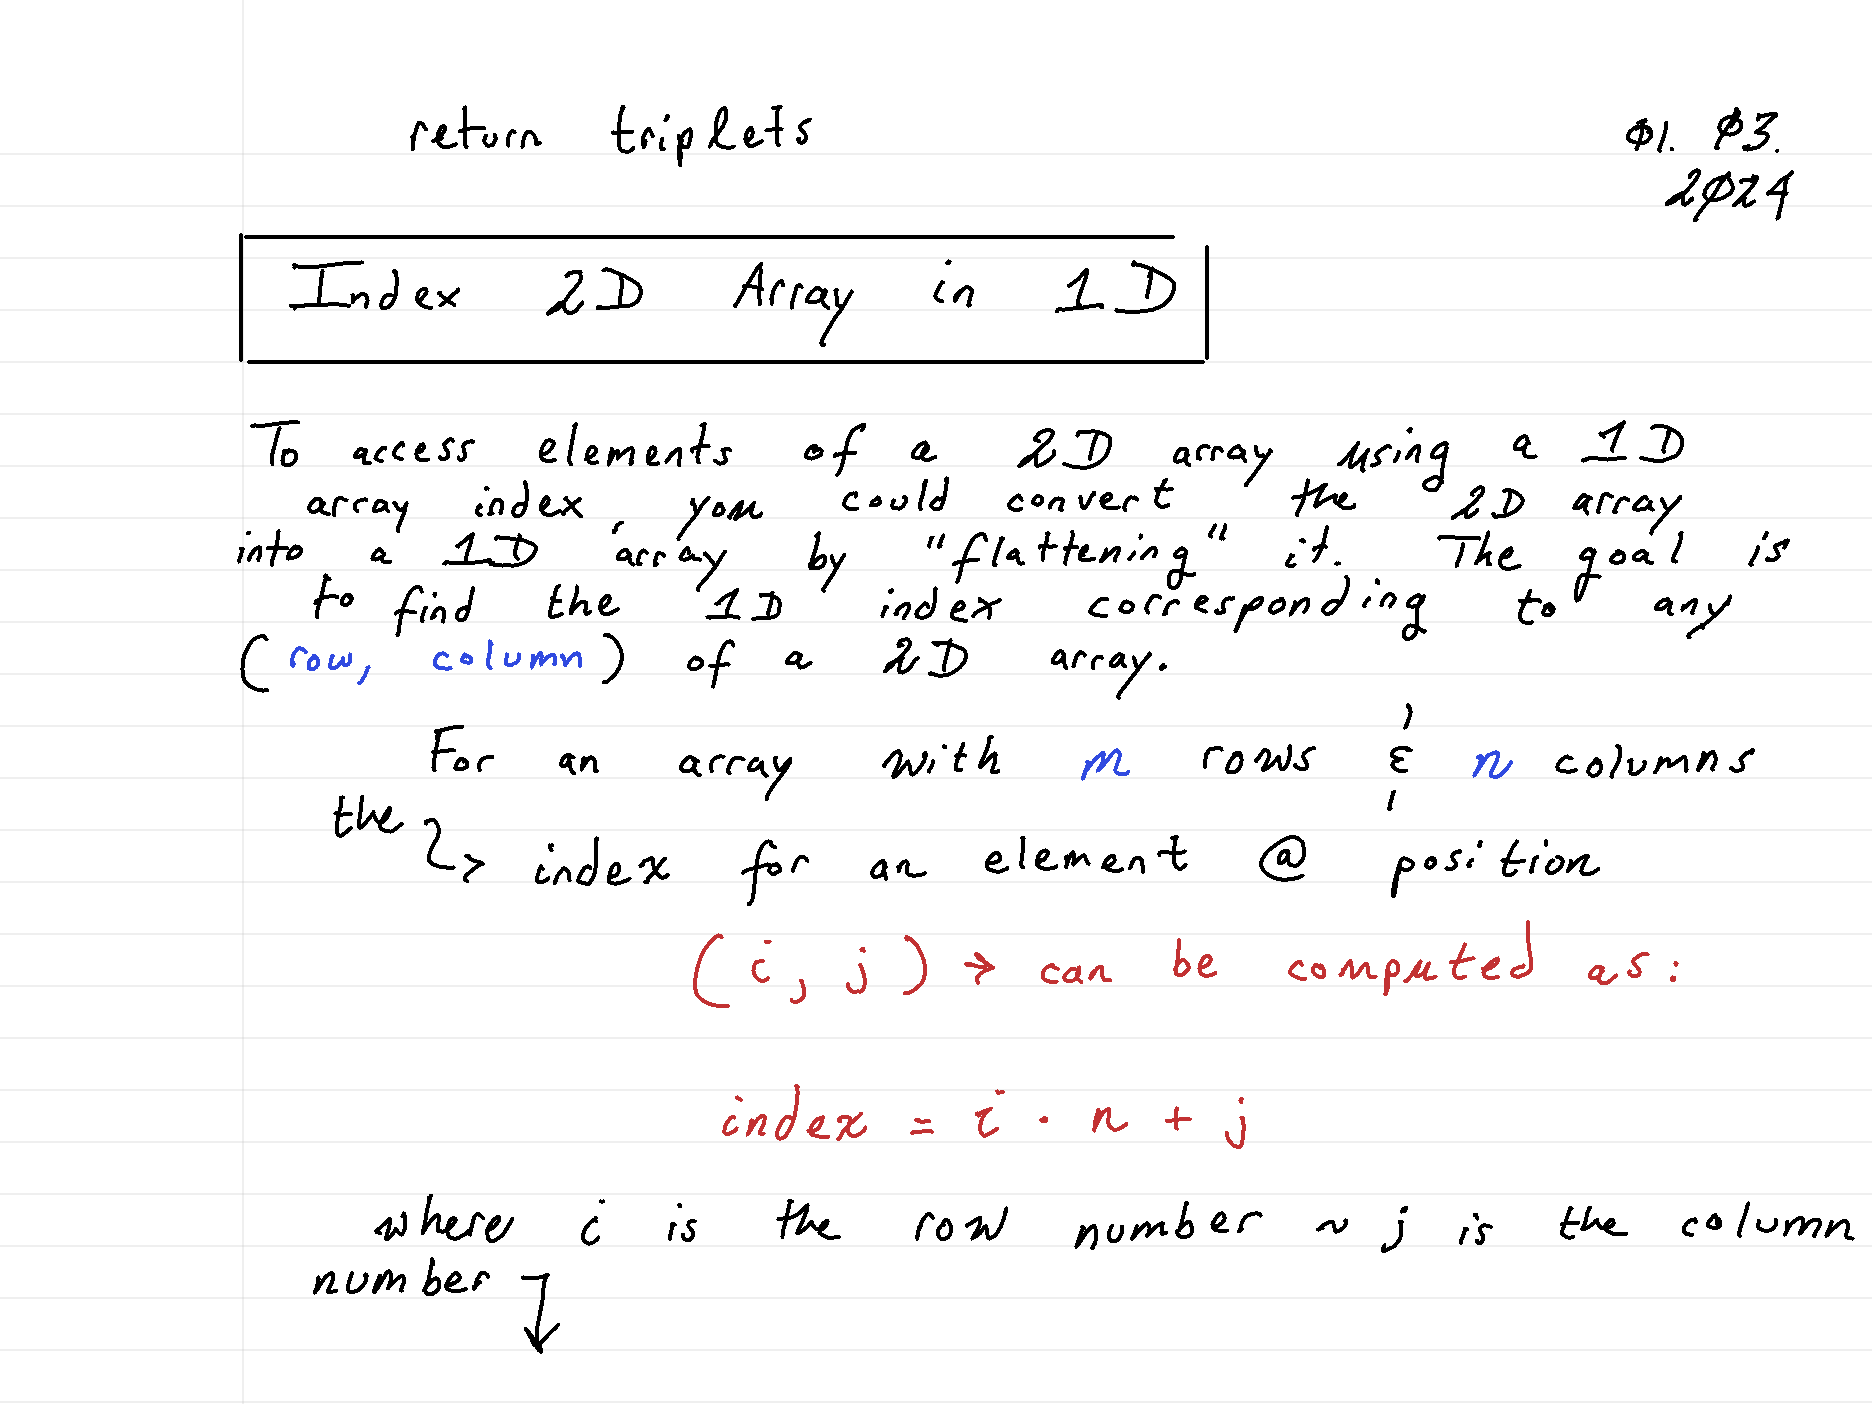 return triplets
Ø1. Ø3.
2Ø24
Index 2D Array in 1D
To access elements of a 2D array using a 1D
array index, you could convert the 2D array
into a 1D array by "flattening" it. The goal is
to find the 1D index corresponding to any
(row, column) of a 2D array.
For an array with m rows & n columns
the ↳ index for an element @ position
(i, j) → can be computed as:
index = i · n + j
where i is the row number ~ j is the column
number ↓